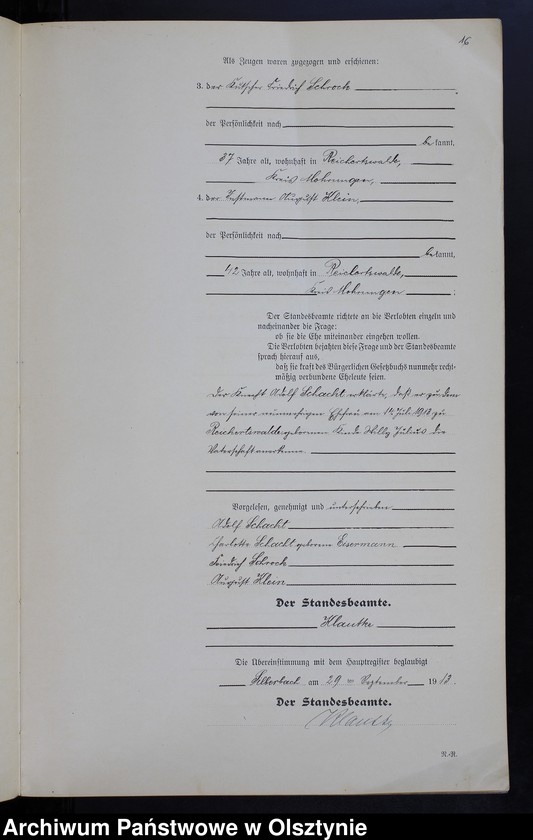 16
Als Zeugen waren zugezogen und erschienen:
3. der Kutscher Friedrich Schrock
der Persönlichkeit nach
bekannt,
37 Jahre alt, wohnhaft in Reichertswalde,
Kreis Mohrungen,
4. der Instmann August Klein,
der Persönlichkeit nach
bekannt,
42 Jahre alt, wohnhaft in Reichertswalde,
Kreis Mohrungen ;
Der Standesbeamte richtete an die Verlobten einzeln und
nacheinander die Frage:
ob sie die Ehe miteinander eingehen wollen.
Die Verlobten bejahten diese Frage und der Standesbeamte
sprach hierauf aus,
daß sie kraft des Bürgerlichen Gesetzbuchs nunmehr recht-
mäßig verbundene Eheleute seien.
Der Knecht Adolf Schacht erklärte, daß er zu dem
von seiner nunmehrigen Ehefrau am 14. Juli 1913 zu
Reichertswalde geborenen Kinde Willy Julius die
Vaterschaft anerkenne.
Vorgelesen, genehmigt und unterschrieben
Adolf Schacht
Charlotte Schacht geborene Eisermann
Friedrich Schrock
August Klein
Der Standesbeamte.
Klautke
Die Übereinstimmung mit dem Hauptregister beglaubigt
Silberbach am 29ten September 1913.
Der Standesbeamte.
Klautke
R.-R.
Archiwum Państwowe w Olsztynie